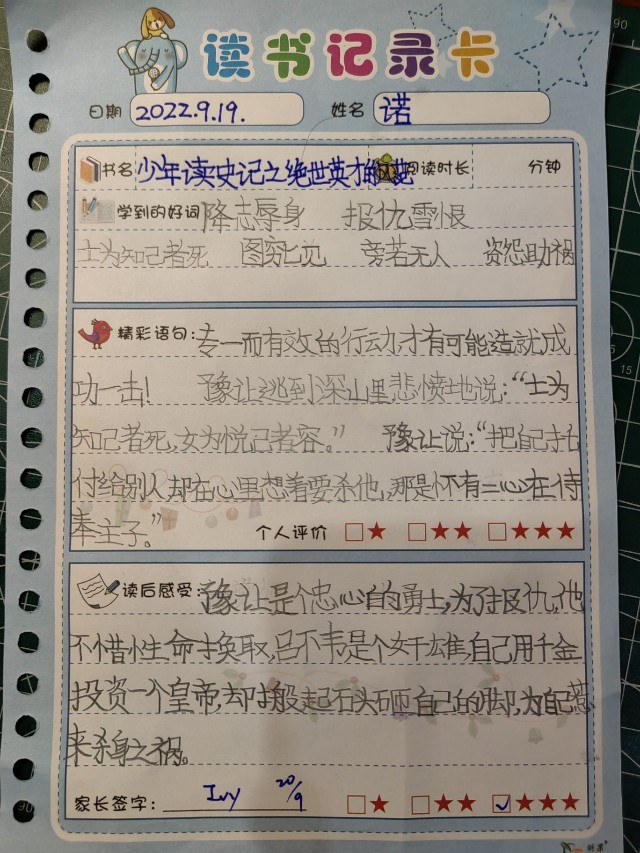 读书记录卡
日期 2022.9.19. 姓名 诺
书名 少年读史记之绝世英才的 阅读时长 分钟
学到的好词 降志辱身 报仇雪恨
士为知己者死 图穷匕见 旁若无人 资怨助祸
精彩语句: 专一而有效的行动,才有可能造就成
功一击! 豫让逃到深山里悲愤地说:“士为
知己者死,女为悦己者容。” 豫让说:“把自己托
付给别人却在心里想着要杀他,那是怀有二心在侍
奉主子。”
个人评价 ★ ★★ ★★★
读后感受: 豫让是个忠心的勇士,为了报仇,他
不惜性生命才换取,吕不韦是个奸雄,自己用千金
投资一个皇帝,却搬起石头砸自己的脚,为自己惹
来杀身之祸。
家长签字: Ivy 20/9 ★ ★★ ✓★★★